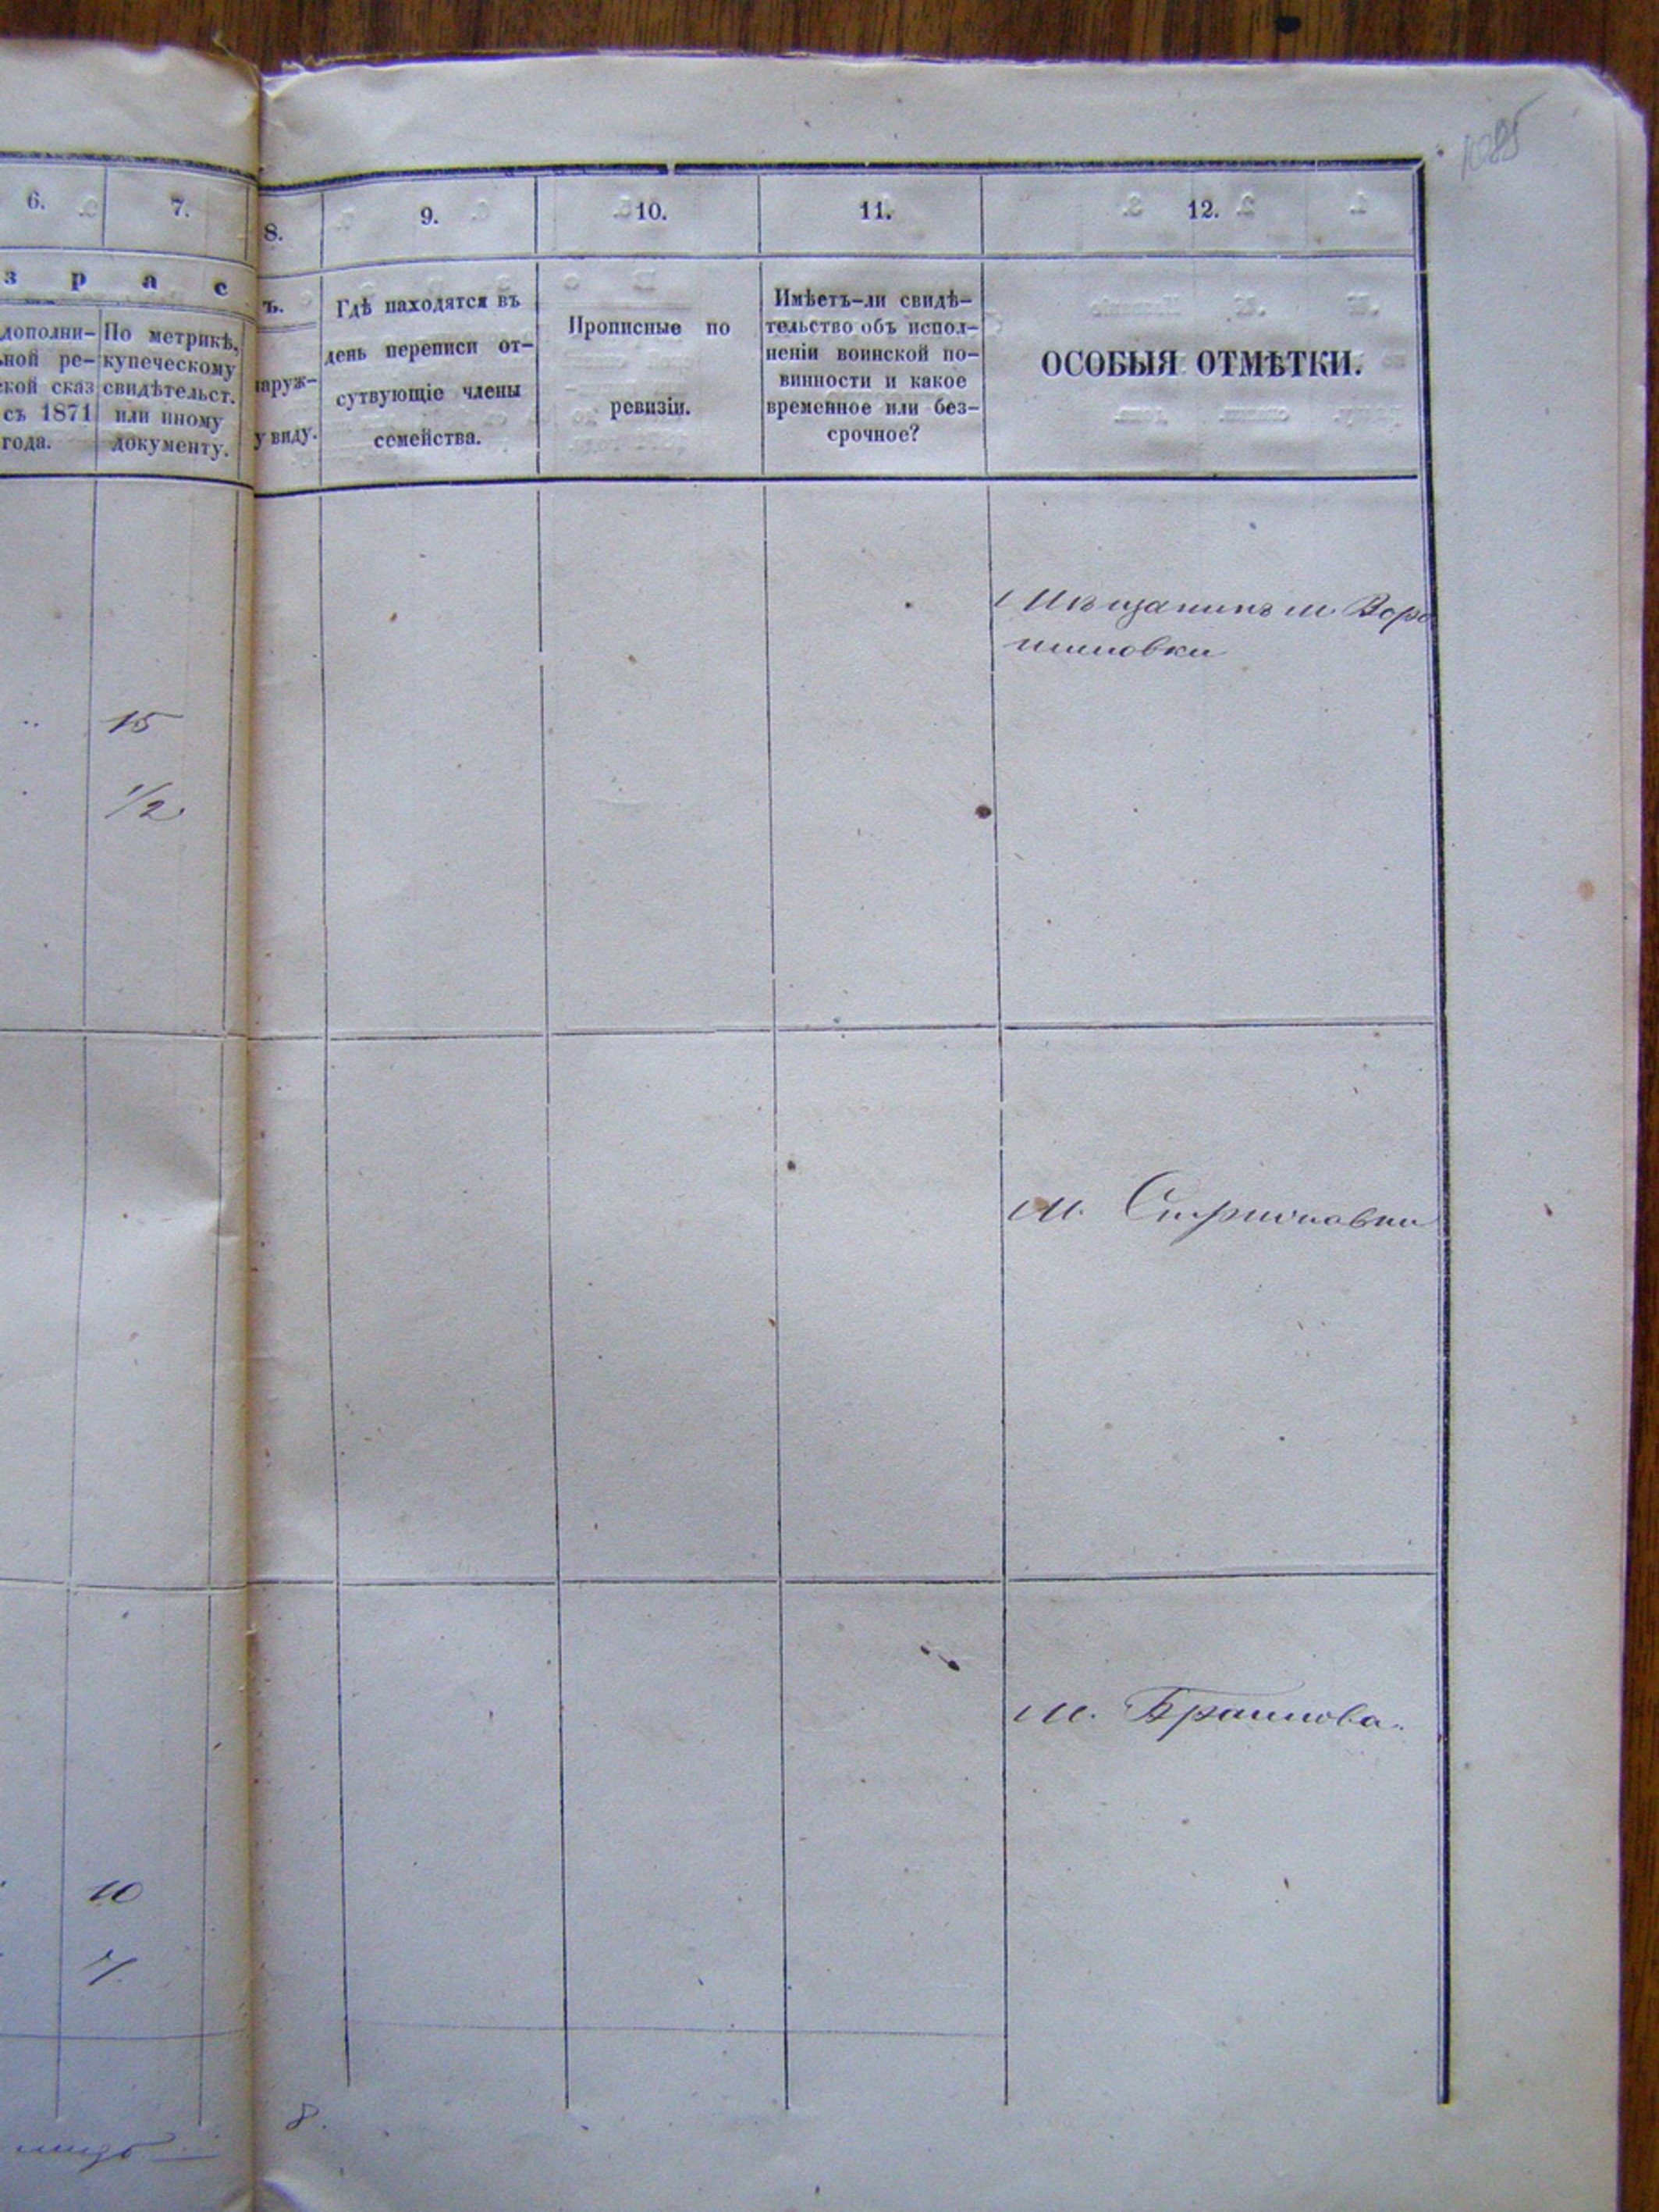 1085
6. 7. 8. 9. 10. 11. 12.
з р а с
дополни-
ной ре-
ской сказ
съ 1871
года.
По метрикѣ,
купеческому
свидѣтельст.
или иному
документу.
ъ.
наруж-
у виду.
Гдѣ находятся въ
день переписи от-
сутвующіе члены
семейства.
Прописные по
ревизіи.
Имѣетъ-ли свидѣ-
тельство объ испол-
неніи воинской по-
винности и какое
временное или без-
срочное?
ОСОБЫЯ ОТМѢТКИ.
Мѣщанинъ м. Воро
шиловки
15
1/2
м. Стрижавки
м. Браилова.
10
8.